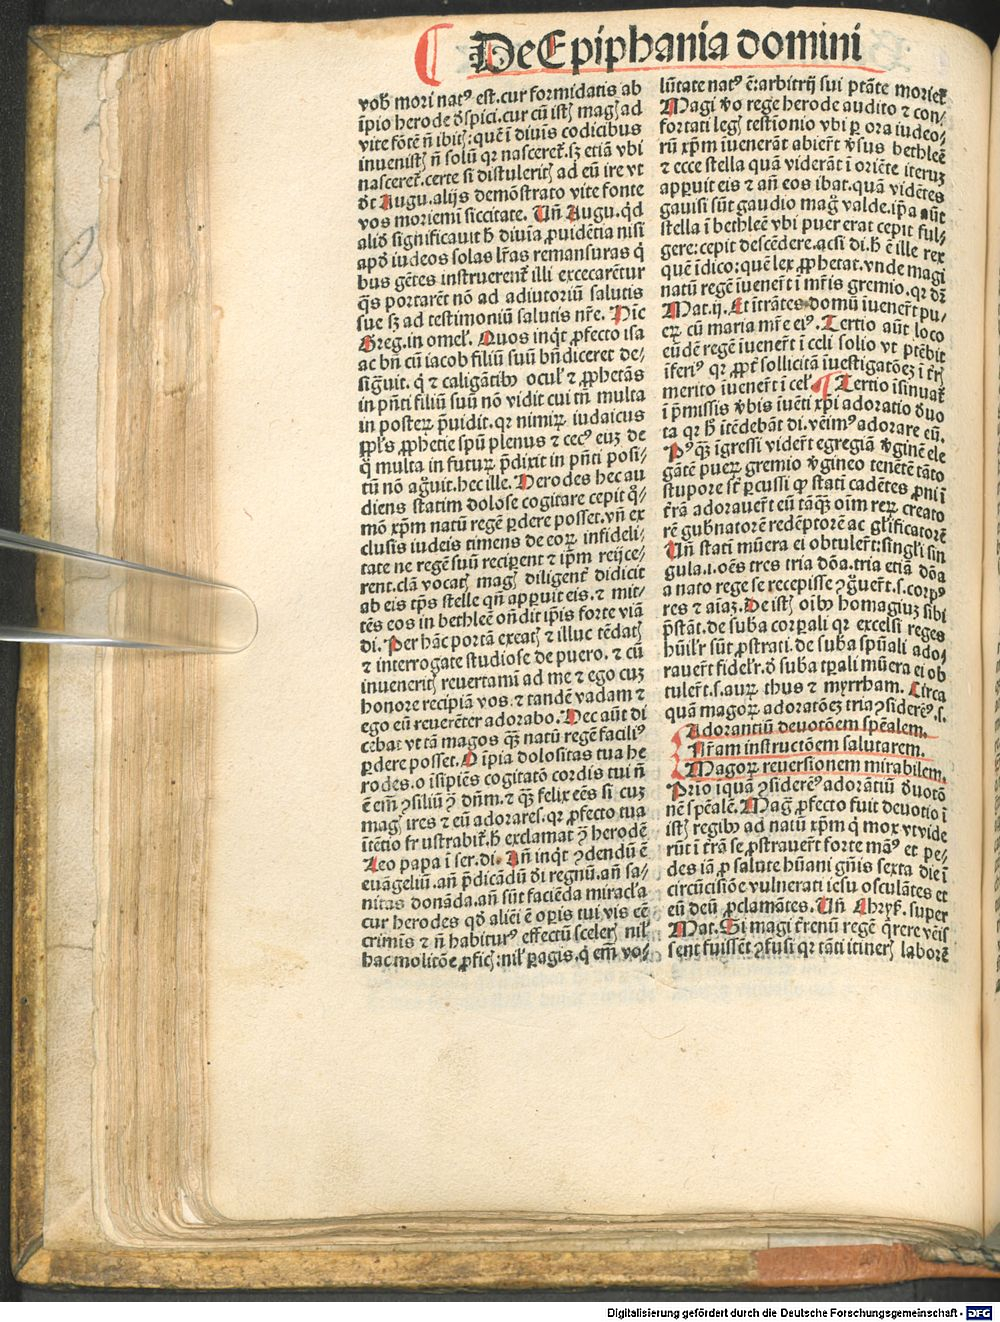 De Epiphania domini
vob̄ mori natꝰ est. cur formidatis ab
īpio herode ꝺ̄spici. cur cū istꝭ magꝭ ad
vite fōtē n̄ ibitꝭ: quē ī diuīs codicibus
inuenistꝭ n̄ solū qr nasceret̄. sꝫ etiā vbi
nasceret̄. certe si distuleritꝭ ad eū ire vt
ꝺ̄t Augu. alijs demōstrato vite fonte
vos moriemi siccitate. Vn̄ Augu. qd̄
aliꝺ̄ significauit h̄ diuīa ꝓuidētia nisi
apꝺ̄ iudeos solas lr̄as remansuras q̄
bus gētes instruerent̄ illi excecarētur
q̄s portarēt nō ad adiutoriū salutis
sue sꝫ ad testimoniū salutis nr̄e. Hīc
Greg. in omel̓. Quos inq̇t ꝓfecto isa
ac bn̄ cū iacob filiū suū bn̄diceret de⸗
siḡuit. q̇ ⁊ caligātibꝰ ocul̓ ⁊ ꝓphetās
in pn̄ti filiū suū nō vidit cui tn̄ multa
in posterꝝ p̄uidit. qr nimirꝝ iudaicus
ppl̓s ꝓphetie spū plenus ⁊ cecꝰ euꝫ de
q̊ multa in futurꝝ p̄dixit in pn̄ti posi⸗
tū nō aḡuit. hec ille. Herodes hec au
diens statim dolose cogitare cepit q̊⸗
mō xp̄m natū regē ꝑdere posset. vn̄ ex
clusis iudeis timens de eoꝝ infideli⸗
tate ne regē suū reciperent ⁊ ip̄m reijce⸗
rent. clā vocatꝭ magꝭ diligent̄ didicit
ab eis tp̄s stelle qn̄ apparuit eis. ⁊ mit⸗
tēs eos in bethleē on̄dit ip̄is forte viā
di. Per hāc portā exeatꝭ ⁊ illuc tēdatꝭ
⁊ interrogate studiose de puero. ⁊ cū
inueneritꝭ reuertamī ad me ⁊ ego cuꝫ
honore recipiā vos. ⁊ tandē vadam ⁊
ego eū reuerēter adorabo. Hec aūt di
cebat vt tā magos q̄ꝫ natū regē faciliꝰ
ꝑdere posset. O īpia dolositas tua he
rodes. o īsipiēs cogitatō cordis tui n̄
ē em̄ ꝯsiliū ꝯ̄ dn̄m. ⁊ q̄ꝫ felix eēs si cuꝫ
magꝭ ires ⁊ eū adorares. qr ꝓfecto tua
ītētio frustrabit̄. h̄ exclamat ꝯ̄ herodē
Leo papa ī ser. di. An̄ inq̇t ꝯdendū ē
euāgeliū. an̄ p̄dicādū ꝺ̄i regnū. an̄ sa⸗
nitas donāda. an̄ sūt faciēda miracl̓a
cur herodes qꝺ̄ aliēi ē oꝑis tui vis cē
crimīs ⁊ n̄ habiturꝰ effectū scelerꝭ nil̓
hac molitōe ꝓficꝭ: nil̓ ꝑagis. q̇ em̄ vo⸗
lūtate natꝰ ē: arbitrij sui ptāte moriet̄.
Magi v̊o rege herode audito ⁊ con⸗
fortati legꝭ testīonio vbi ꝑ ora iudeo⸗
rū xp̄m iuenerāt abiert̄ v̓sus bethleē
⁊ ecce stella quā viderāt ī oriēte iteruꝫ
apꝑuit eis ⁊ an̄ eos ibat. quā vidētes
gauisi sūt gaudio mag̊ valde. ip̄a aūt
stella ī bethleē vbi puer erat cepit ful⸗
gere: cepit descēdere. acsi di. h̄ ē ille rex
quē īdico: quē lex ꝓphetat. vnde magi
natū regē iuenert̄ ī mr̄is gremio. qr dr̄
Mat. ij. Et ītrātes domū iuenert̄ pu⸗
eꝝ cū maria mr̄e eiꝰ. Tertio aūt loco
eūdē regē iuenert̄ ī celi solio vt ptēbit
īferiꝰ qr ꝓpt̓ sollicitā iuestigatōeꝫ ī tr̄ꝭ
merito iuenert̄ ī cel̓. Tertio īsinuat̄
ī p̄missis v̓bis iuēti xp̄i adoratio ꝺ̄uo
ta qr h̄ itēdebāt di. veimꝰ adorare eū.
Pꝰ q̄ꝫ īgressi vider̄t egregiā v̓ginē ele
gātē pueꝝ gremio v̓gineo tenētē tāto
stupore st̄ ꝑcussi ꝙ statī cadētes ꝓni ī
tr̄ā adorauert̄ eū tāq̄ꝫ oīm reꝝ creato
rē gub̓natorē redēptorē ac gl̓ificatorē
Vn̄ statī mūera ei obtulert̄: singl̓i sin
gula. i. oēs tres tria dōa. tria etiā dōa
a nato rege se recepisse ꝯḡuert̄. s. corpꝰ
res ⁊ aīaꝫ. De istꝭ oībꝰ homagiuꝫ sibi
p̄stāt. de suba corꝑali qr excelsi reges
hūil̓r sūt ꝓstrati. de suba spūali ado⸗
rauert̄ fidel̓r. ꝺ̄ suba tꝑali mūera ei ob
tulert̄. s. auꝝ thus ⁊ myrrham. Circa
quām magoꝝ adoratōeꝫ tria ꝯsiderēꝰ. s.
Adorantiū deuotōem spēalem.
Nr̄am instructōem salutarem.
Magoꝝ reuersionem mirabilem.
Prīo iquā ꝯsiderēꝰ adorātiū ꝺ̄uotō
nē spēalē. Mag̊ ꝓfecto fuit deuotio ī
istꝭ regibꝰ ad natū xp̄m q̇ mox vt vide
rūt ī tr̄ā se ꝓstrauert̄ forte manꝰ et pe⸗
des iā ꝓ salute hūani gn̄is sexta die ī
circūcisiōe vulnerati iesu osculātes et
eū deū ꝓclamātes. Vn̄ Chryẜ. super
Mat. Si magi t̓renū regē q̄rere veīs
sent fuissēt ꝯfusi qr tāti itinerꝭ laborē
Digitalisierung gefördert durch die Deutsche Forschungsgemeinschaft - DFG